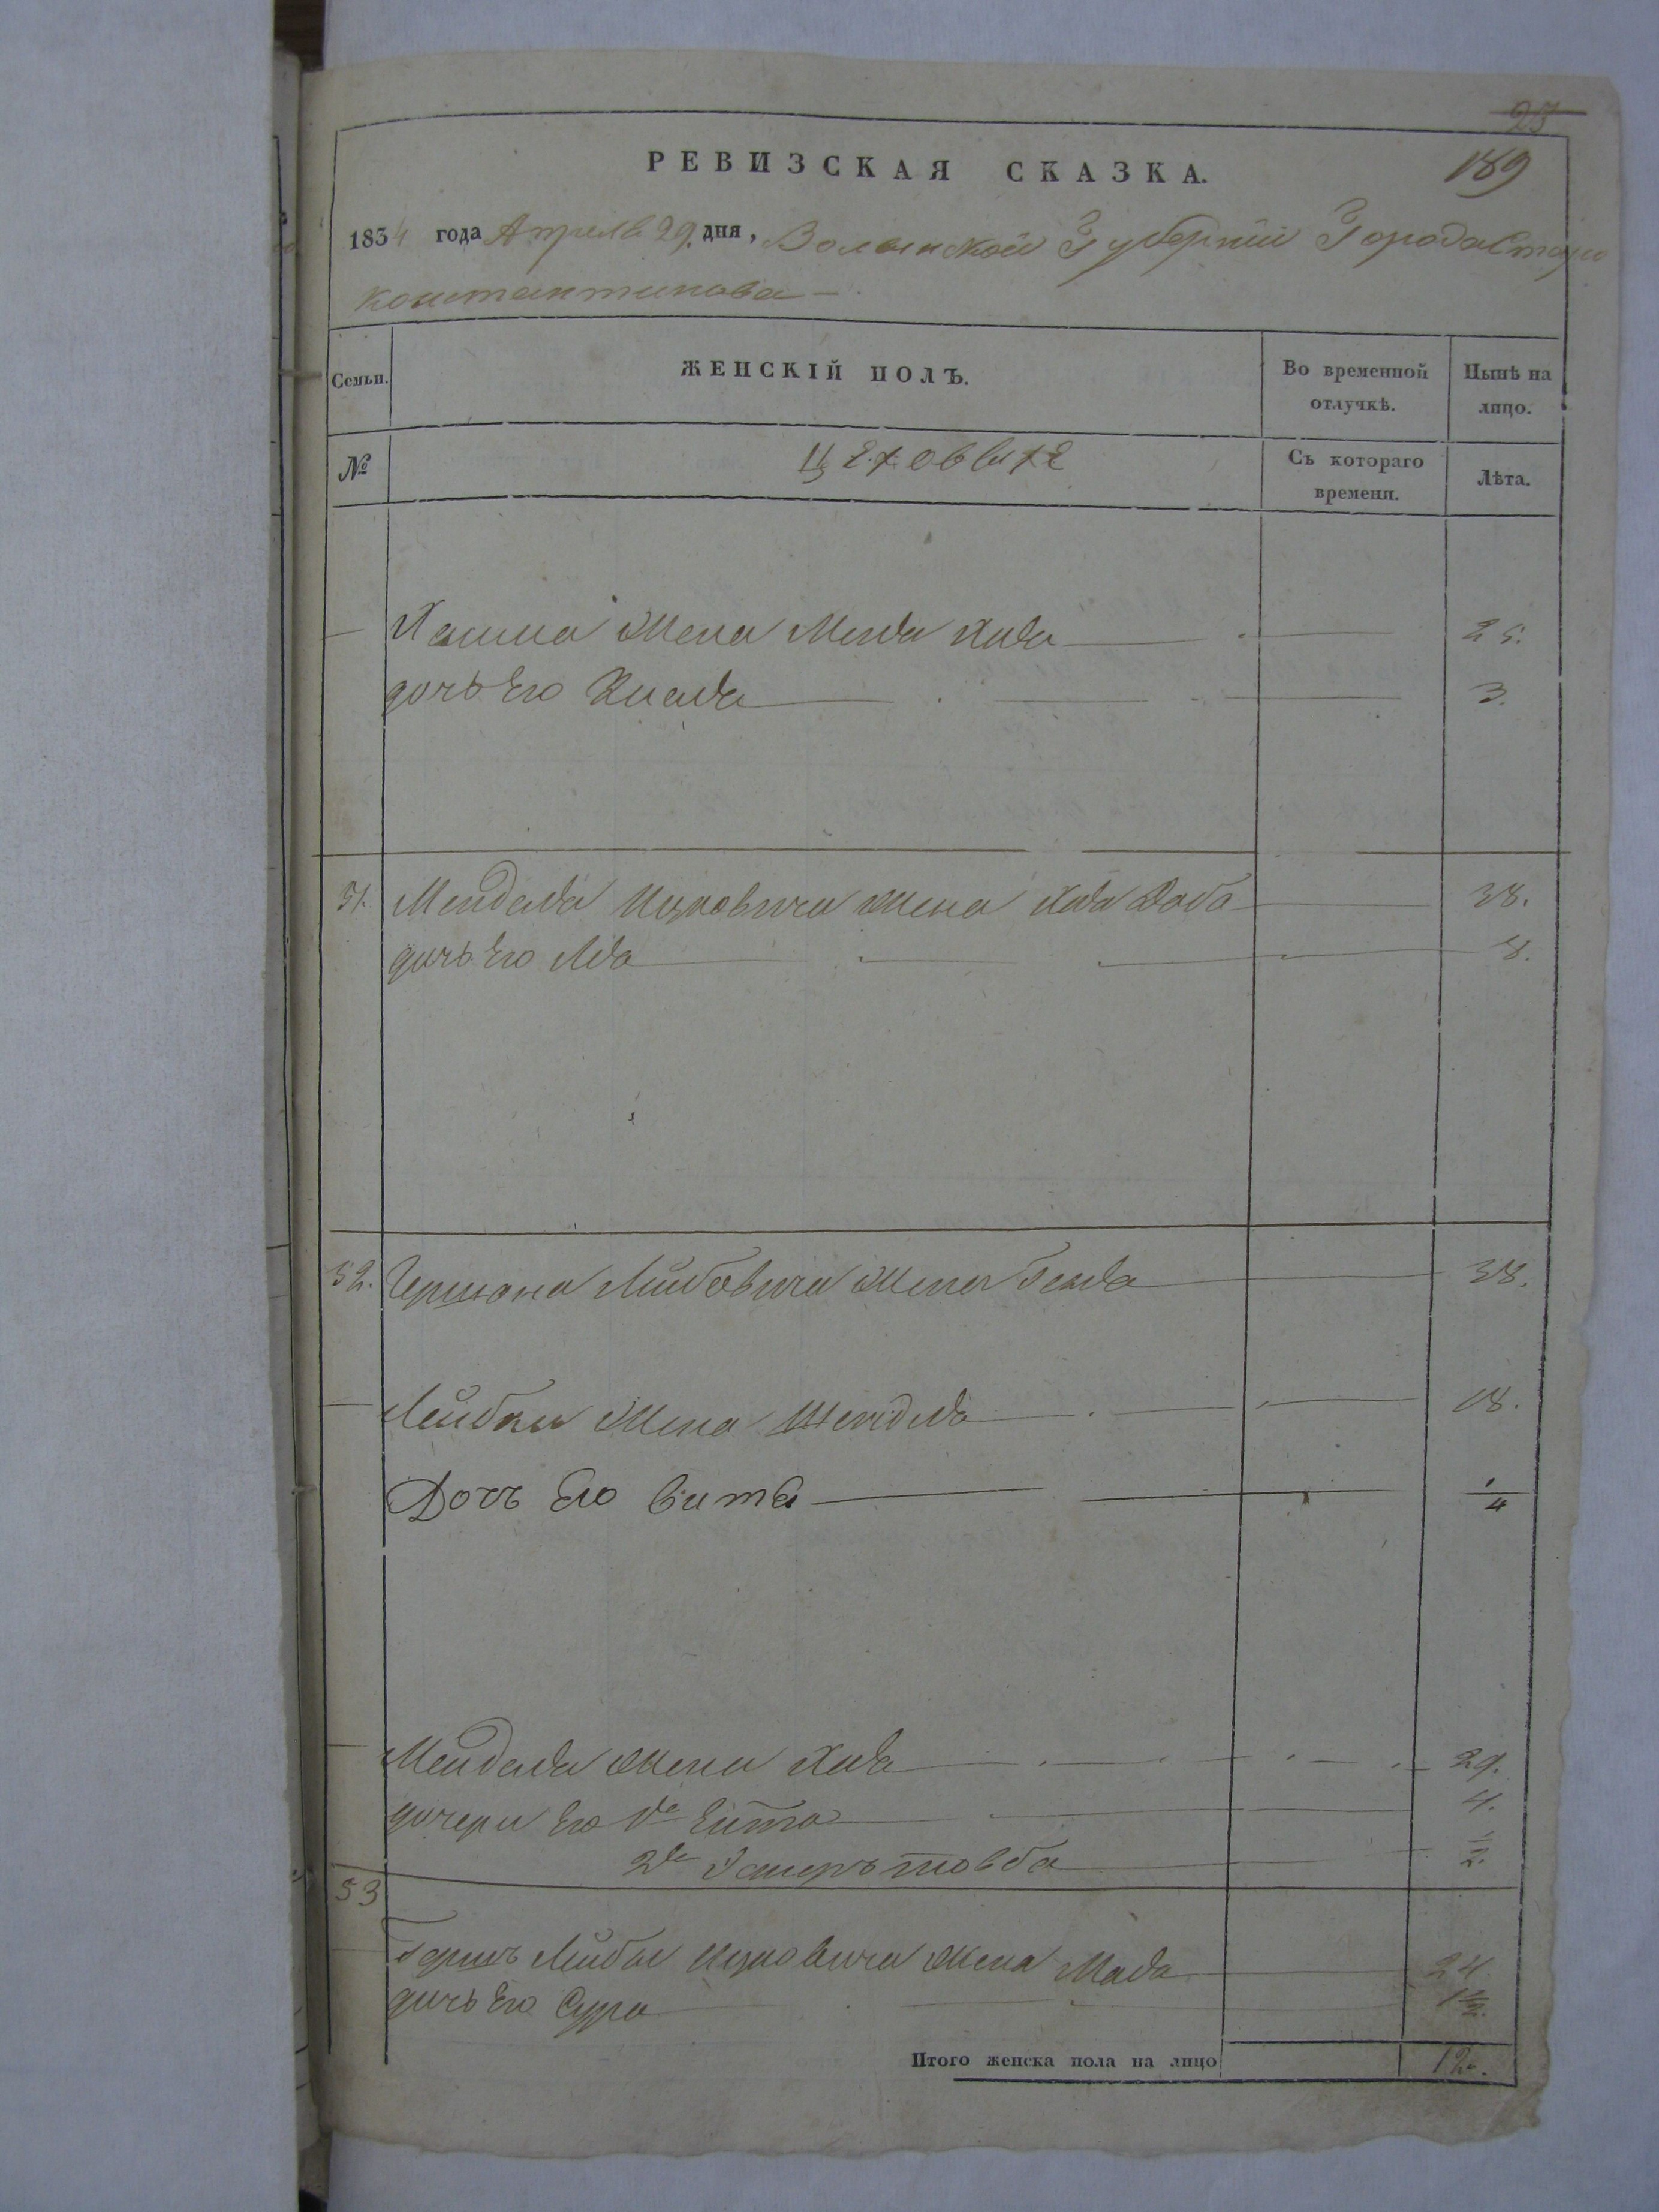 25
РЕВИЗСКАЯ СКАЗКА.
189
1834 года Апреля 29. дня, Волынской Губернiи Города Старо
константинова
Семьи. ЖЕНСКIЙ ПОЛЪ. Во временной отлучкѣ. Нынѣ на лицо.
№ Съ котораго времени. Лѣта.
жена Хая 25.
дочь Его 3.
51. Менделя Ицковича жена Хая Доба 38.
дочь Его Лея 8.
52. Гершона Лейбовича жена Гения 38.
Лейбки жена Шендля 18.
Дочь Его Витя 1/4
Менделя жена Хая 29.
дочери Его 1я Ента 4.
2я товба 1/2.
53
Гершъ Лейбы Ицковича жена Маля 24
дочь Его Сура 1 1/2.
Итого женска пола на лицо 12.